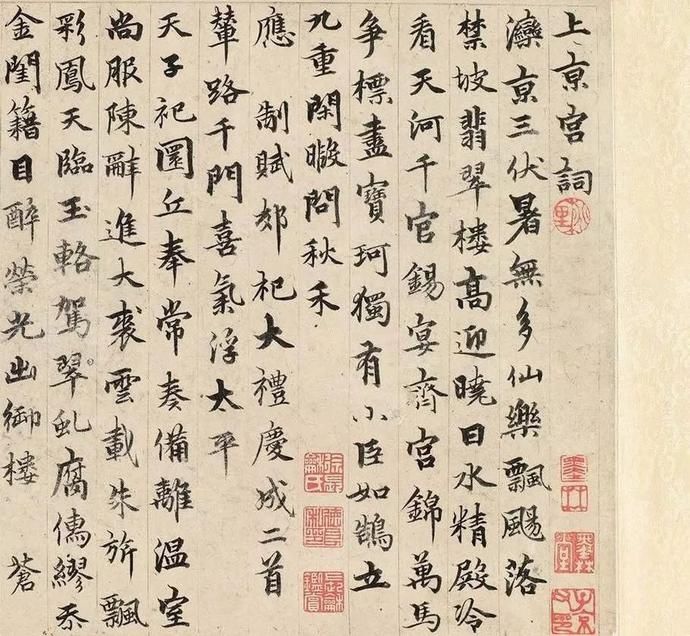 上京宮詞
灤京三伏暑無多仙樂飄颺落
禁坡翡翠樓高迎曉日水精殿冷
看天河千官錫宴齊宮錦萬馬
爭標盡寶珂獨有小臣如鵠立
九重閑暇問秋禾
應 制賦郊祀大禮慶成二首
輦路千門喜氣浮太平
天子祀圜丘奉常奏備離溫室
尚服陳辭進大裘雲載朱旂飄
彩鳳天臨玉輅駕翠虬腐儒繆忝
金閨籍目醉榮光出御樓 蒼